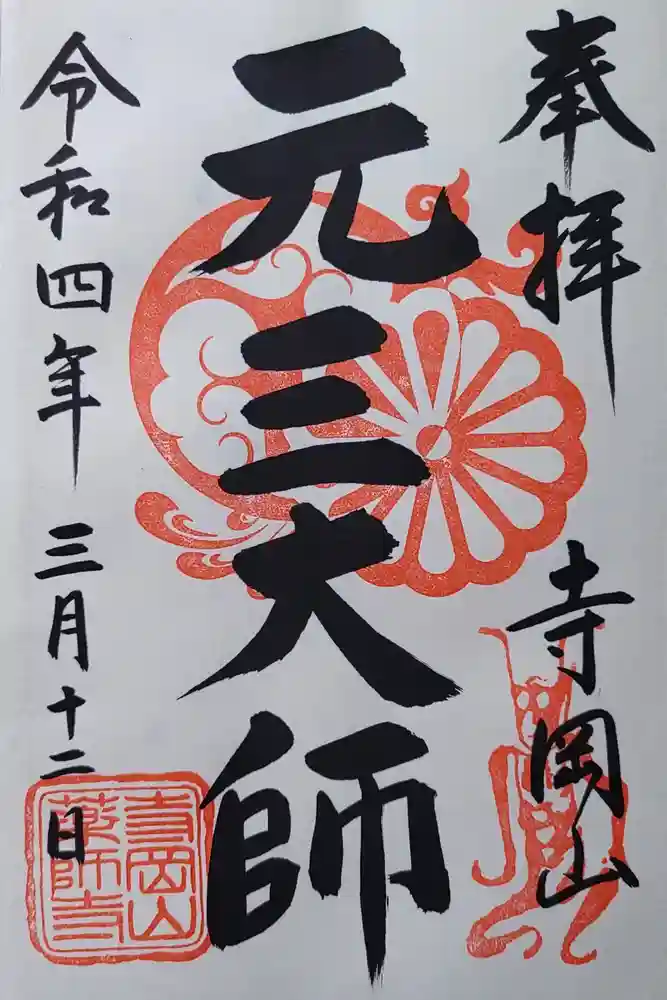 奉拝
寺岡山
元三大師
令和四年三月十二日
寺岡山
薬師寺